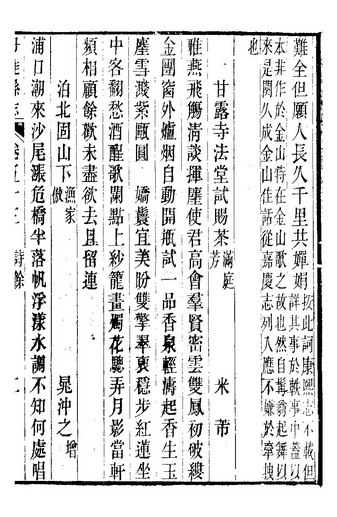 難全但願人長久千里共嬋娟按此詞康熙志不載但
詳其事於軼事中蓋以
本非作於金山特在金山歌之故也然自髯翁起舞以
來是閣久成金山佳話從嘉慶志列入應不嫌於牽拽
也
甘露寺法堂試賜茶滿庭芳 米芾
雅燕飛觴清談揮麈使君高會羣賢密雲雙鳳初破縷
金團窗外爐烟自動開瓶試一品香泉輕濤起香生玉
塵雪濺紫甌圓 嬌鬟宜美盼雙擎翠褎穩步紅蓮坐
中客翻愁酒醒歌闌點上紗籠畫燭花驄弄月影當軒
頻相顧餘歡未盡欲去且留連
泊北固山下漁家傲 晁沖之增
浦口潮來沙尾漲危檣半落帆浮漾水調不知何處唱